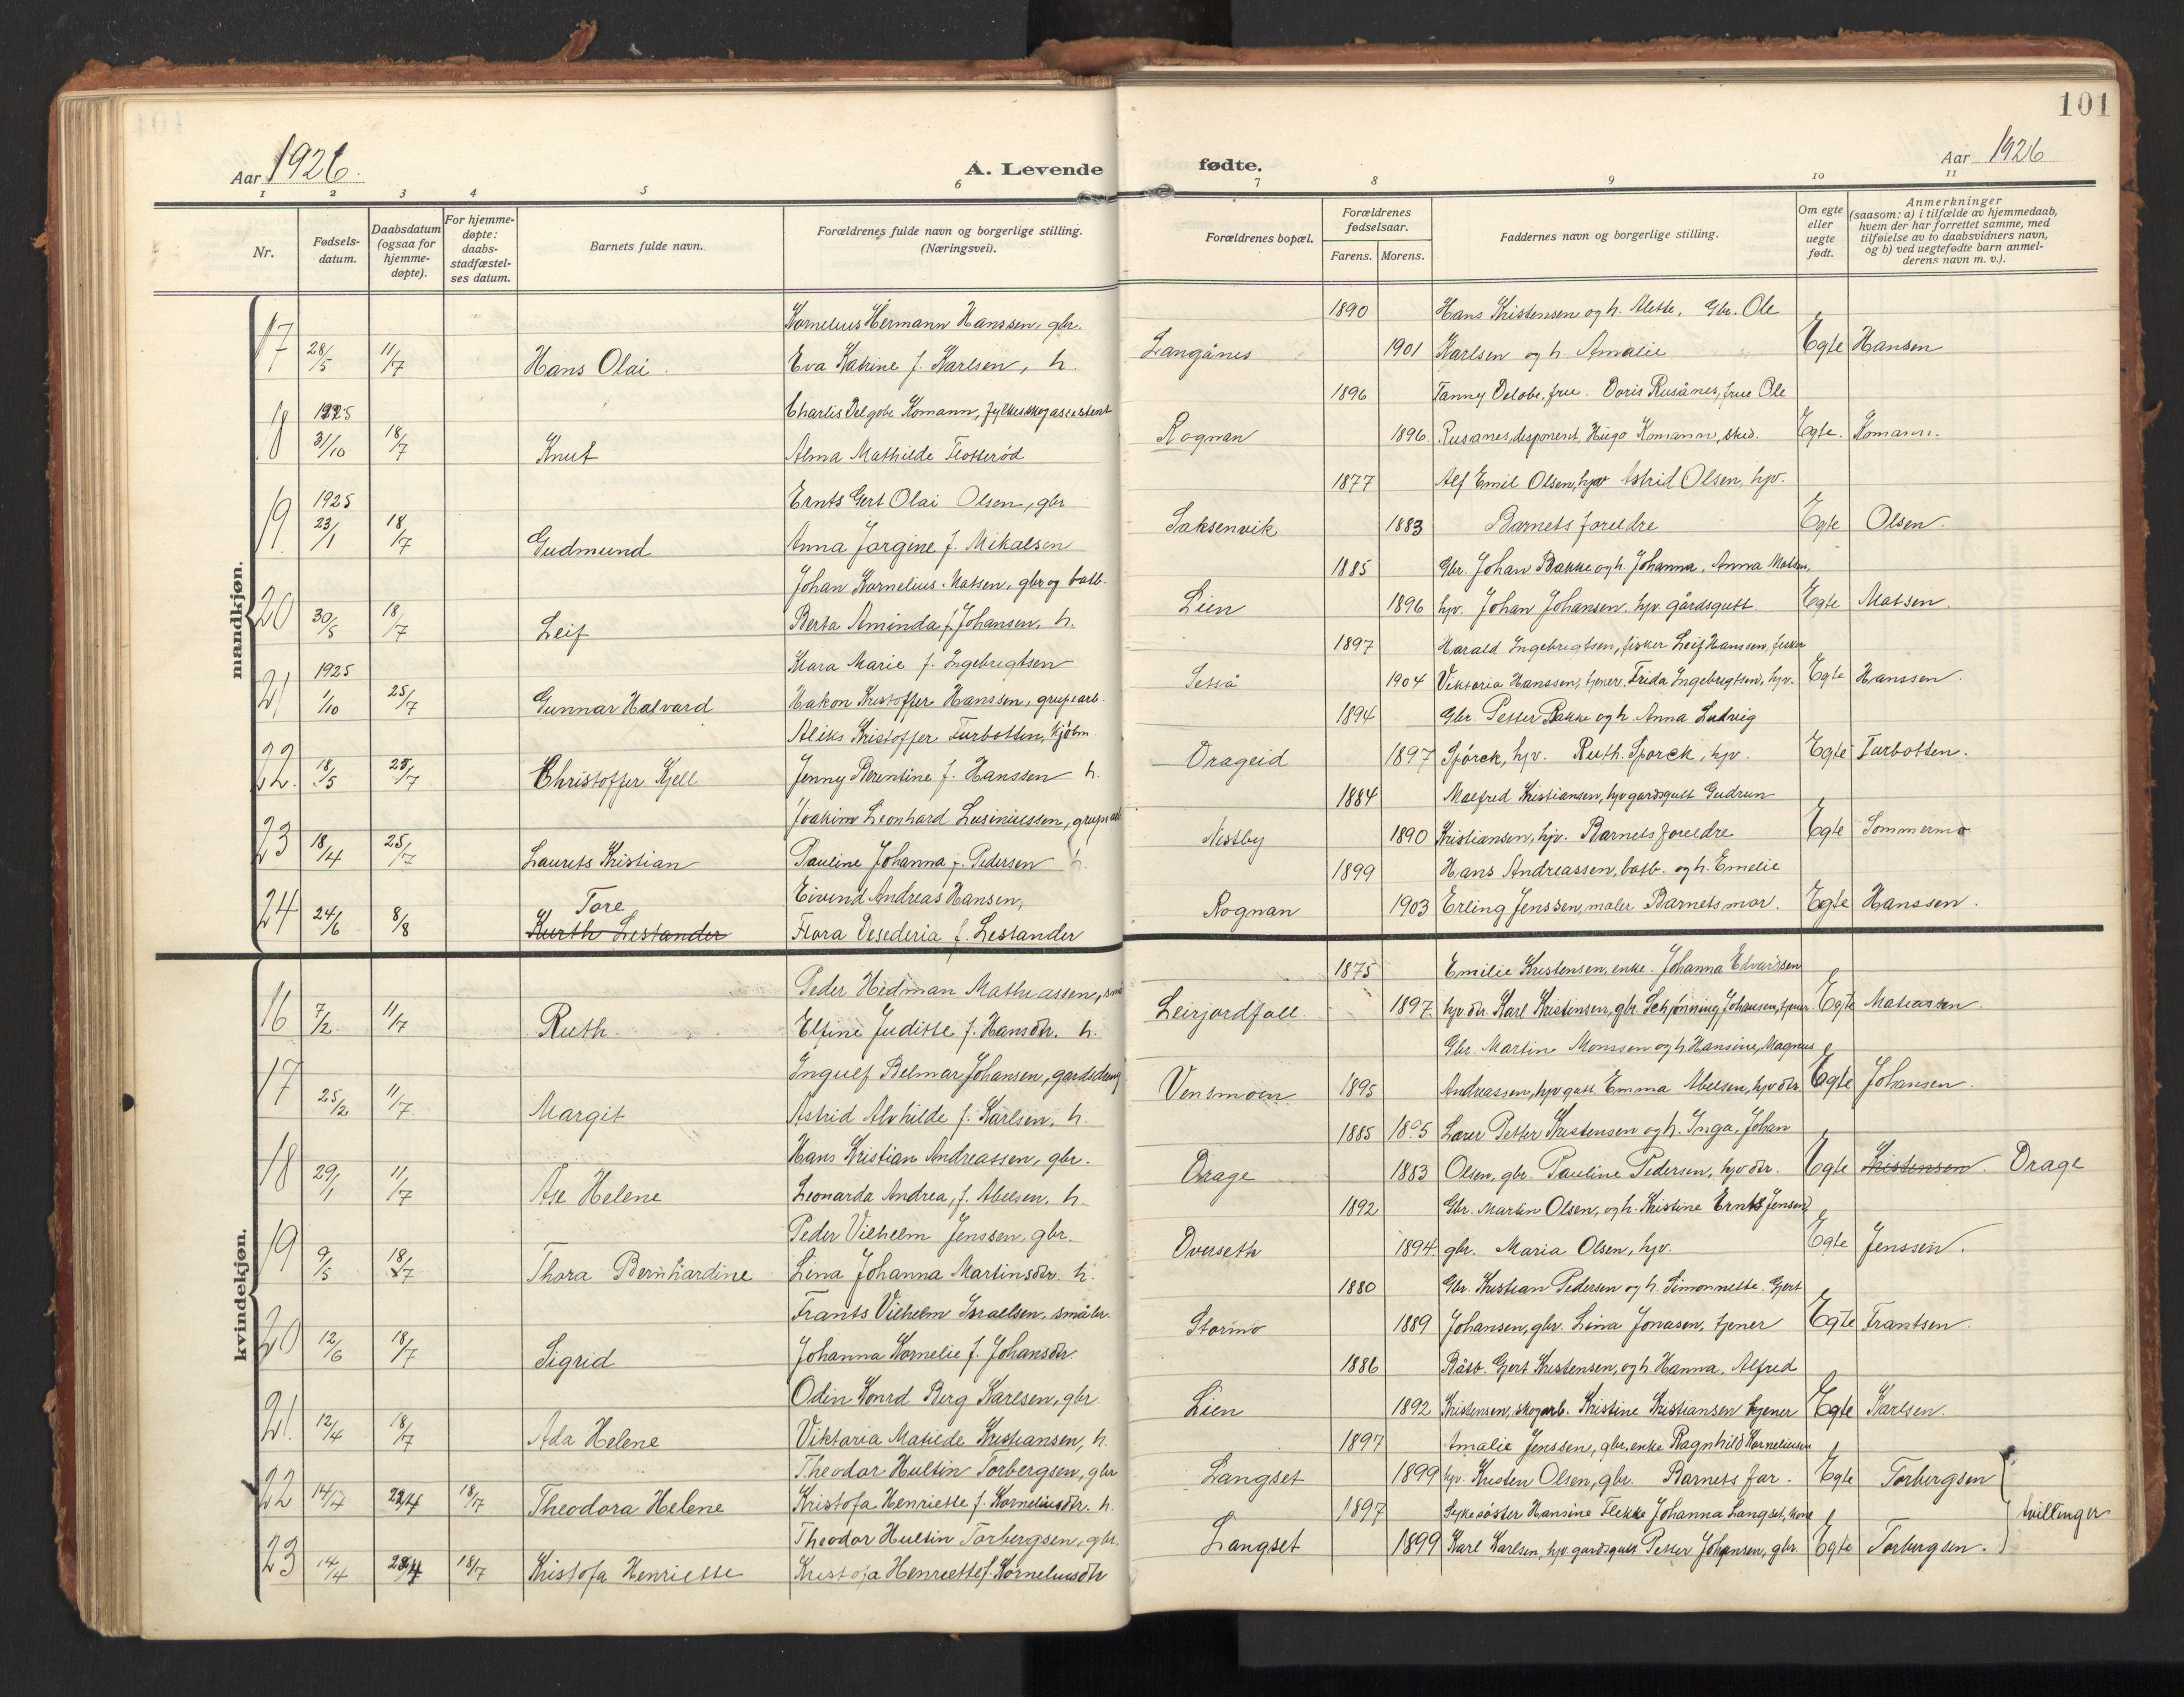 101
Aar 1926.
A. Levende
fødte.
Aar 1926
1 2 3 4 5 6 7 8 9 10 11
Nr.
Fødsels-
datum.
Daabsdatum
(ogsaa for
hjemme-
døpte).
For hjemme-
døpte:
daabs-
stadfæstel-
ses datum.
Barnets fulde navn.
Forældrenes fulde navn og borgerlige stilling.
(Næringsvei).
Forældrenes bopæl.
Forældrenes
fødselsaar.
Farens. Morens.
Faddernes navn og borgerlige stilling.
Om egte
eller
uegte
født.
Anmerkninger
(saasom: a) i tilfælde av hjemmedaab,
hvem der har forrettet samme, med
tilføielse av to daabsvidners navn,
og b) ved uegtefødte barn anmel-
derens navn m. v.).
mandkjøn.
Kornelius Hermann Hanssen, gbr. 1890 Hans Kristensen og h. Alette. Gbr. Ole
17 28/5 11/7 Hans Olai. Eva Katrine f. Karlsen, h. Langånes 1901 Karlsen og h. Amalie Egte Hansen
1925 Charlis Delgobe Komann, fylkesskogassistent 1896 Fanny Delobe, frue. Doris Rusånes, frue Ole
18 31/10 18/7 Knut Alma Mathilde Flotterød Rognan 1896. Rusanes, disponent, Hugo Komann, stud. Egte. Komann.
1925 Ernts Gert Olai Olsen, gbr 1877 Alf Emil Olsen, hjv Astrid Olsen, hjv.
19. 23/1 18/7 Gudmund Anna Jorgine f. Mikalsen Saksenvik 1883 Barnets foreldre Egte Olsen.
Johan Kornelius Matsen, gbr og batb. 1885 Gbr. Johan Bakke og h. Johanna, Anna Matsen,
20 30/5 18/7 Leif Berta Aminda f. Johansen, h. Lien 1896 hjv. Johan Johansen, hjv. gårdsgutt Egte Matsen.
1925 Klara Marie f. Ingebrigtsen 1897 Harald Ingebrigtsen, fisker Leif Hanssen, fisker
21, 1/10 25/7 Gunnar Halvard Hakon Kristoffer Hanssen, grupearb. Setså 1904 Viktoria Hanssen, tjener, Frida Ingebrigtsen, hjv. Egte Hanssen.
Aliks Kristoffer Turbotten, kjøbm. 1894 Gbr. Petter Bakke og h. Anna Ludvig
22. 18/5 25/7 Christoffer Kjell Jenny Berentine f. Hanssen h. Drageid 1897 Spörck, hjv. Ruth Sporck, hjv. Egte Turbotten.
Joakim Leonhard Lusiniussen, grupearb 1884 Malfred Kristiansen, hjv gardsgutt Gudrun
23 18/4 25/7 Laurets Kristian Pauline Johanna f. Pedersen h. Nestby 1890 Kristiansen, hjv. Barnets foreldre Egte Sommermo
Tore Eivind Andreas Hansen, 1899 Hans Andreassen, batb. og h. Emelie
24 24/6 8/8 Kurth Lestander Flora Desederia f. Lestander Rognan 1903 Erling Jenssen, maler Barnets mor. Egte Hanssen.
kvindekjøn.
Peder Hedman Mathiassen, små 1875 Emilie Kristensen, enke. Johanna Edvardsen
16 7/2. 11/7 Ruth. Elfine Juditte f. Hansdtr. h. Leirjordfall. 1897 hjv. dtr. Karl Kristensen, gbr. Schjønning Johansen, tjener. Egte Matiassen
Ingulf Belmar Johansen, gardsdreng Gbr. Martine Monssen og h. Hansine, Magnus
17 25/2 11/7 Margit Astrid Alvhilde f. Karlsen, h. Vensmoen 1895 Andreassen, hjv gutt Emma Abelsen, hjv dtr. Egte Johansen.
Hans Kristian Andreassen, gbr. 1885 1895 Lærer Petter Kristensen og h. Inga, Johan
18 29/1 11/7 Åse Helene Leonarda Andrea, f. Abelsen. h. Drage 1883 Olsen, gbr. Pauline Pedersen, hjv dtr. Egte Kristensen. Drage
Peder Vilhelm Jenssen, gbr. 1892 Gbr. Martin Olsen, og h. Kristine Ernts Jensen
19 9/5 18/7 Thora Bernhardine Lina Johanna Martinsdtr. h. Overseth 1894 gbr. Maria Olsen, hjv. Egte Jenssen.
Frants Vilhelm Israelsen, småbr. 1880 Gbr. Kristian Pedersen og h. Simonnette. Gjert
20 12/6 18/7 Sigrid Johanna Kornelie f. Johansdtr. Stormo 1889 Johansen, gbr. Lina Jonasen, tjener Egte Frantsen.
Odin Konrd Berg Karlsen, gbr 1886 Båtb. Gjert Kristensen, og h. Hanna, Alfred
21. 12/4 18/7 Ada Helene Viktoria Matilde Kristiansen, h. Lien 1892 Kristensen, skogarb. Kristine Kristiansen tjener Egte Karlsen.
Theodor Hultin Torbergsen, gbr 1897 Amalie Jenssen, gbr. enke Ragnhild Korneliusen
22 14/4 23/4 18/7 Theodora Helene Kristofa Henriette f. Korneliusdtr. h. Langset 1899 hjv. Kristen Olsen, gbr. Barnets far. Egte Torbergsen
Theodor Hultin Torbergsen, gbr. 1897 Sykesöster Hansine Flekke Johanna Langset, kone tvillinger
23 14/4 23/4 18/7 Kristofa Henriette Kristofa Henriette f. Korneliusdtr Langset 1899 Karl Karlsen, hjv gardsgutt Petter Johansen, gbr. Egte Torbergsen.